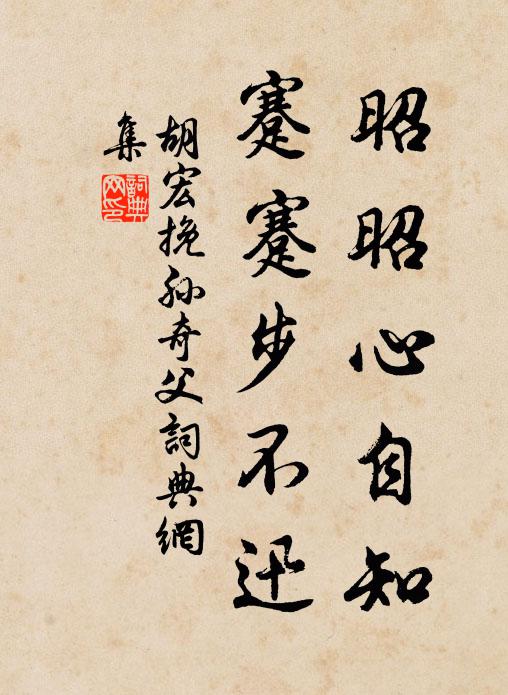 昭昭心自知
蹇蹇步不迅
胡宏挽孙奇父詞典網
集
詞典
网印